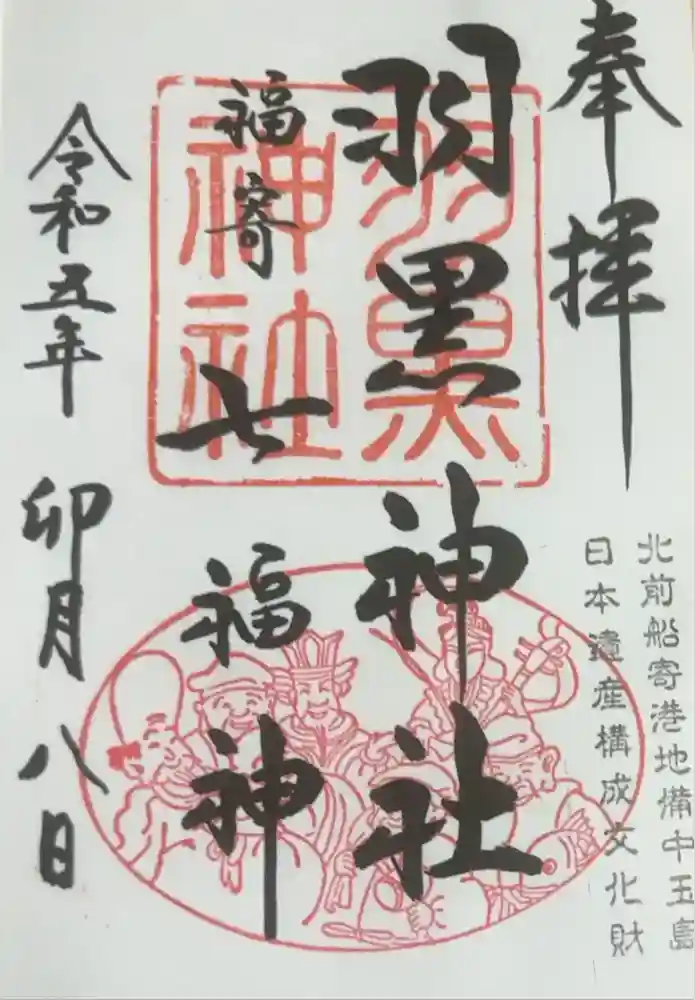 奉拝
北前船寄港地備中玉島
日本遺産構成文化財
羽黒神社
羽黒
神社
福寄
七福神
令和五年 卯月 八日